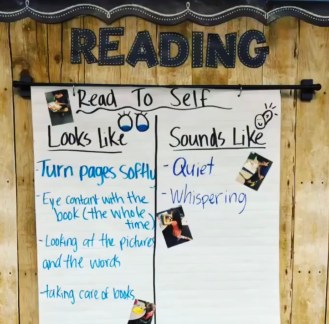 READING
Read To Self
Looks Like
Turn pages softly
- Eye contant with the
book (the whole
time)
- Looking at the pictures
and the words
- taking care of books
Sounds Like
- Quiet
- Whispering